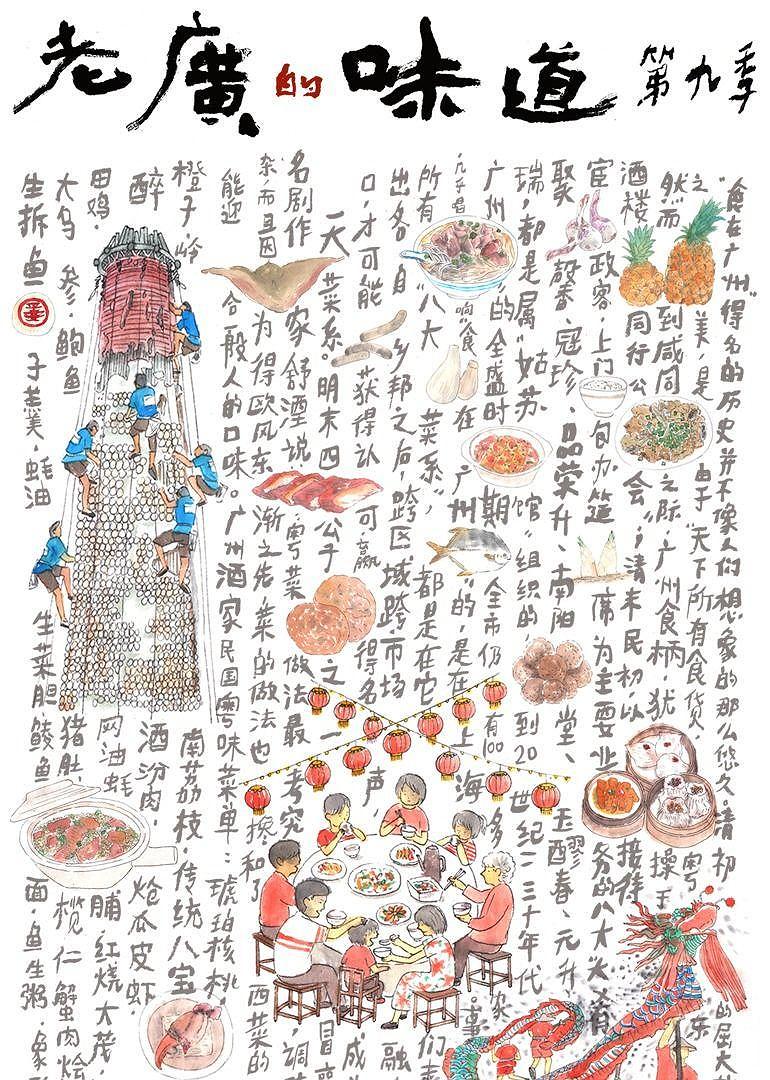 老廣的味道
第九季
"食在广州"得名的历史并不像人们想象的那么悠久，清初 的屈大
之 美，是由于"天下所有食货， 粤东
然而到咸同之际，广州食柄，犹操手
酒楼同行公会"；清末民初，以接待
宦政客，上门包办筵席为主要业务的八大
聚馨、冠珍、品荣升、南阳堂、玉醪春、元升
瑞，都是属"姑苏馆"组织的，到20世纪二三十年代
广州的全盛时期，全市仍有100多家
唱响"食在广州"的，是在上海。事
所有"八大菜系"，都是在它们
出各自乡邦之后，跨区域跨市场融
口，才可能获得认可，赢得名声，成
一大菜系。明末四公子之一冒
名剧作家舒湮说：粤菜做法最考究，调
杂，而且因为得欧风东渐之先，菜的做法也掺和了西菜的
能迎合一般人的口味。广州酒家民国粤味菜单：琥珀核桃，
橙子，岭南荔枝，传统八宝
醉 酒汾肉，炝瓜皮虾，
田鸡，网油蚝脯，红烧大茂，
大乌参，鲍鱼猪肚，榄仁蟹肉烩
生拆鱼子羹，蚝油生菜胆，鲮鱼面，鱼生粥，象形